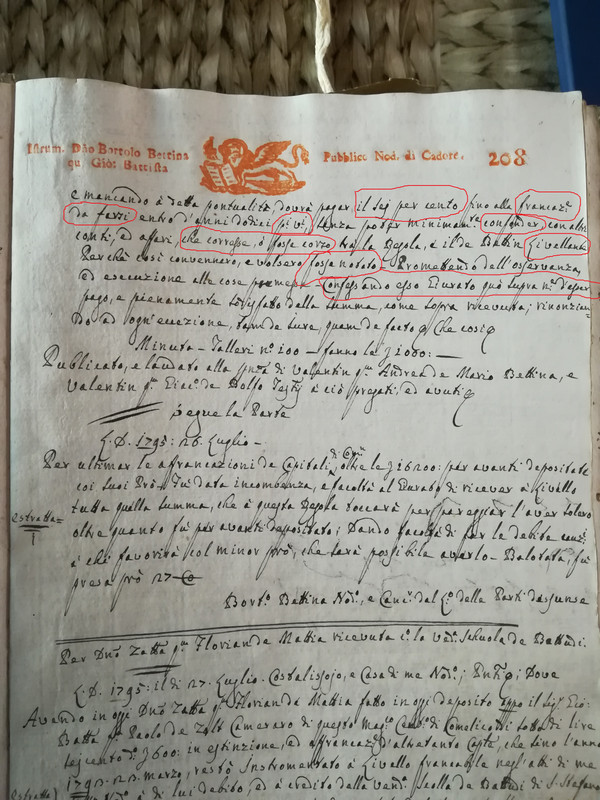 Istrum. Dño Bortolo Bettina
qu Giò: Battista
Pubblico Nod. di Cadore.
208
e mancando à detta pontualità, dovrà pagar il sej per cento fino alla francaz.e
da farsi entro d'anni dodici senza poter minimam.te confonder con altri
conti, ed affari, che corresse, ò fosse corso tra la Regola, e il de Bettin Livellante
Perche così convennero, e volsero fosse notato - Promettendo dell'osservanza,
ed esecuzione alle cose premesse - Confessando esso Giurato quò supra n.e d'esser
pago, e pienamente sodisfatto della summa, come sopra ricevuta; rinonzian
do ad ogni eccezione, tam de Jure, quam de facto che così
Minuta - Talleri n.o 100 - fanno £ 1000: -
Publicato, e laudato alla pnza di Valentin qm Andrea de Mario Bettina, e
Valentin qm Giac.o de Holfo Testj à ciò pregati, ed avuti
Segue la Parte
L. D. 1795: 26. Luglio -
Per ultimar le affrancazioni de Capitali, oltre le £ 16200: per avanti depositate
coi suoi Prò - Fù data incombenza, e facoltà al Giurato di ricever à Livello
tutta quella summa, che à questa Regola toccarà per pareggiar l'aver
oltre quanto fù per avanti depositato; Dando facoltà di far le debite cauz.i
à chi favorirà col minor prò, che sarà possibile averlo - Balotata, fù
presa prò 27 - Co
estratta
Bort.o Bettina Nod.o, e Canc.r dal L.o delle Parti desunse
Per Dno Zatta qm Florian de Mattia ricevuta c.o la Ven. Schuola de Battudi.
L. D. 1795: il dì 27. Luglio. Costalissojo, e Casa di me Nod.o; Dove
Avendo in oggi Dno Zatta qm Florian de Mattia fatto in oggi deposito appo il Sig.r Giò:
Batta qm Paolo de Zolt Cameraro di questo di Comelico sotto di lire
sejcento d.o £ 600: in estinzione, ed affrancaz.e d'altretanto Cap.le, che sino l'anno
1793. 23. marzo, restò Instromentato à Livello francabile negl'atti di me
Nod.o à di lui debito, ed à credito della Ven. Scolla de Battudi di S. Stefano
estratta